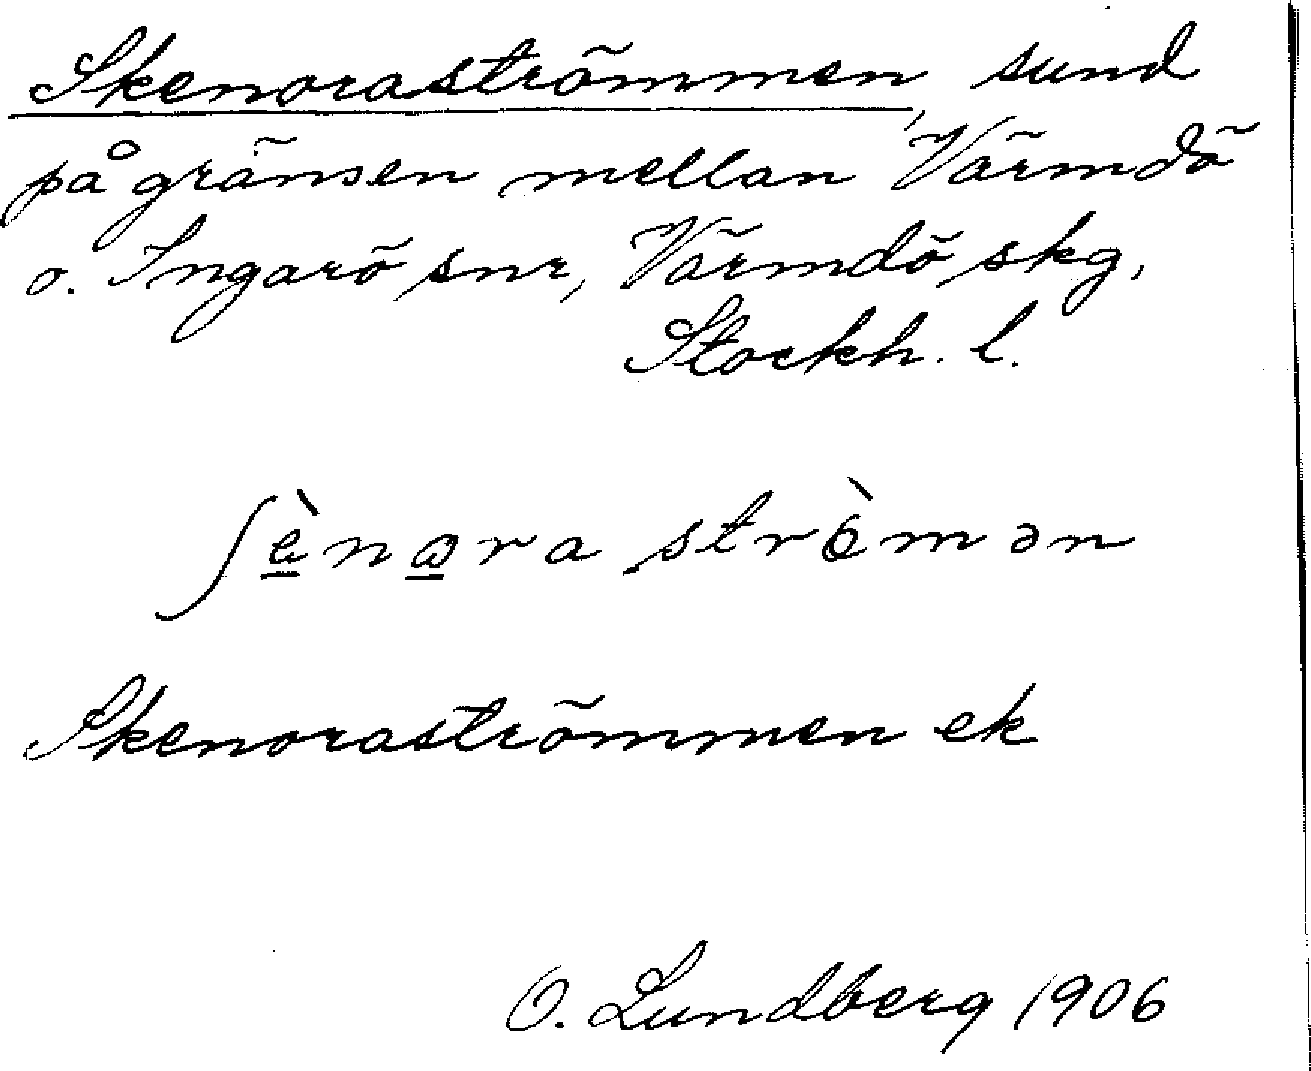 Skenoraströmmen, sund
på gränsen mellan Värmdö
o. Ingarö snr, Värmdö skg,
Stockh. l.
ʃènɷra strò̈mən
Skenoraströmmen ek
O. Lundberg 1906